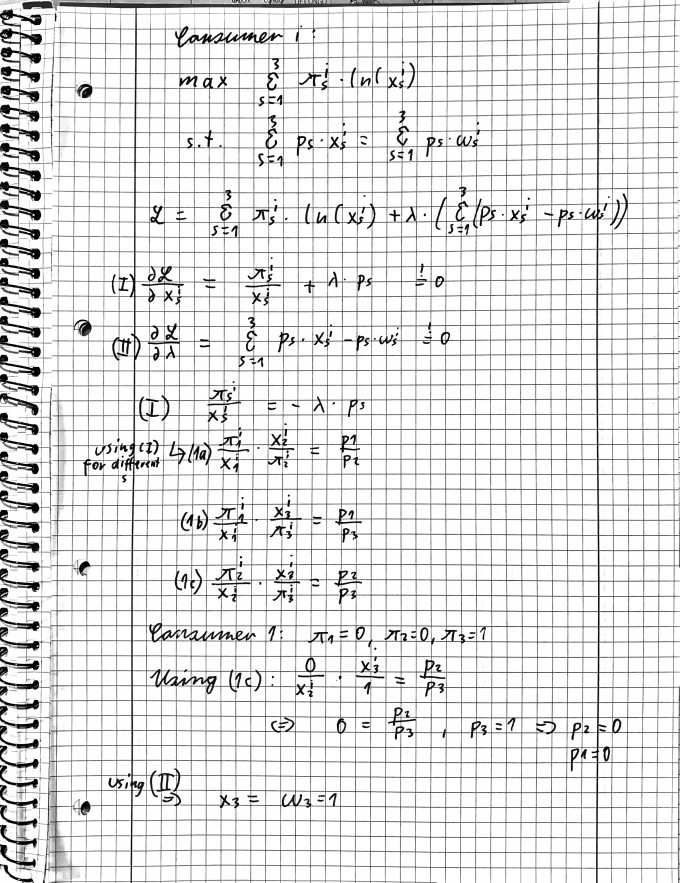 Consumer i:
max Σ_{s=1}^{3} π_s^i · ln(x_s^i)
s.t. Σ_{s=1}^{3} p_s · x_s^i = Σ_{s=1}^{3} p_s · ω_s^i
ℒ = Σ_{s=1}^{3} π_s^i · ln(x_s^i) + λ · (Σ_{s=1}^{3} (p_s · x_s^i - p_s · ω_s^i))
(I) ∂ℒ/∂x_s^i = π_s^i/x_s^i + λ · p_s != 0
(II) ∂ℒ/∂λ = Σ_{s=1}^{3} p_s · x_s^i - p_s · ω_s^i != 0
(I) π_s^i/x_s^i = - λ · p_s
using (I) for different s ↳ (1a) π_1^i/x_1^i · x_2^i/π_2^i = p_1/p_2
(1b) π_1^i/x_1^i · x_3^i/π_3^i = p_1/p_3
(1c) π_2^i/x_2^i · x_3^i/π_3^i = p_2/p_3
Consumer 1: π_1=0, π_2=0, π_3=1
Using (1c): 0/x_2^i · x_3^i/1 = p_2/p_3
⇔ 0 = p_2/p_3, p_3=1 ⇒ p_2=0
p_1=0
using (II)
⇒ x_3 = ω_3 = 1